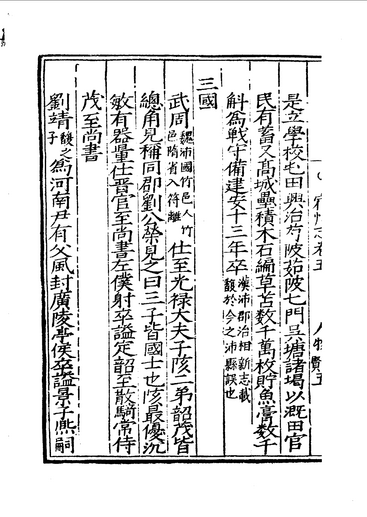 宿州志卷五 人物賢五
是立學校屯田興治芍陂茹陂七門吳塘諸堨以溉田官
民有畜又高城壘積木石編草苫數千萬枚貯魚膏數千
斛為戰守備建安十三年卒漢沛郡治相新志載
馥於今之沛縣誤也
三國
武周魏沛國竹邑人竹
邑隋省入符離仕至光祿大夫子陔二弟韶茂皆
總角見稱同郡劉公榮見之曰三子皆國士也陔最優沉
敏有器量仕晉官至尚書左僕射卒諡定韶至散騎常侍
茂至尚書
劉靖馥之
子為河南尹有父風封廣陵亭侯卒諡景子熈嗣